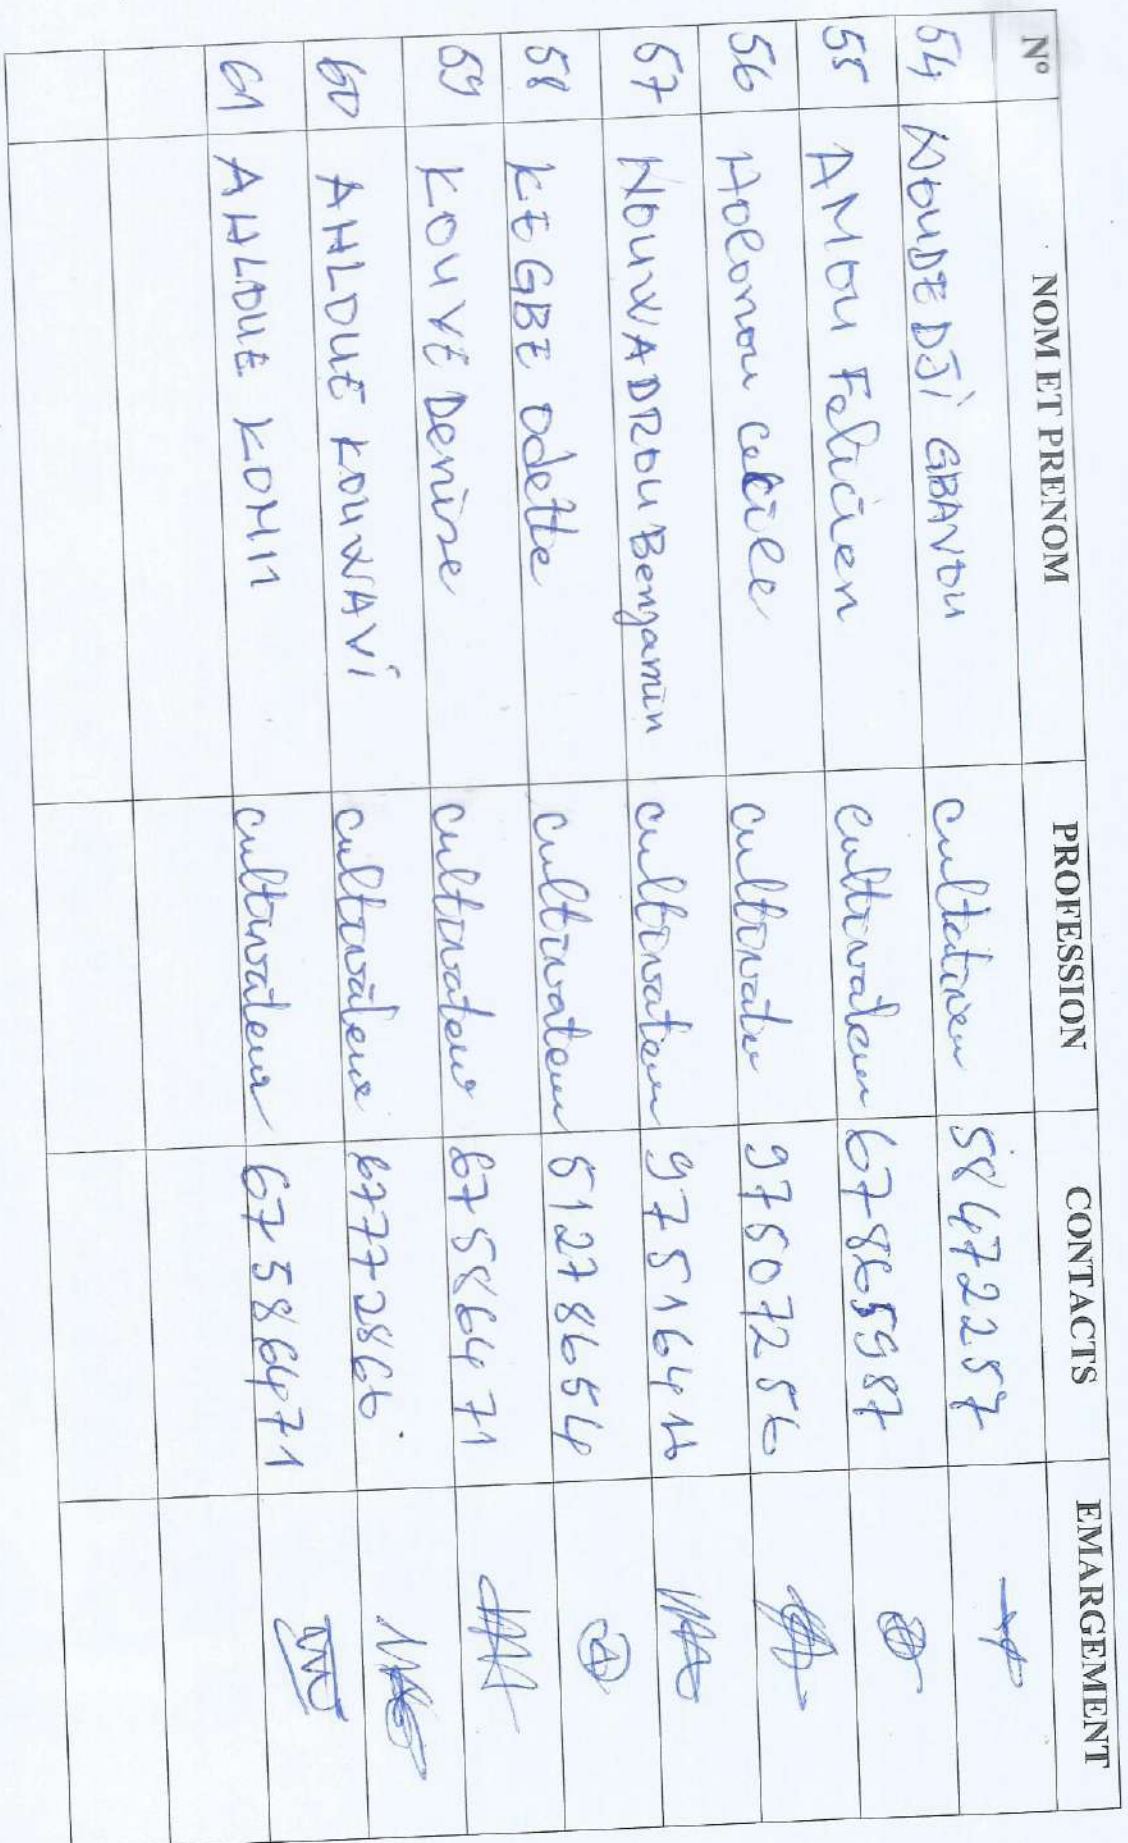 N° NOM ET PRENOM PROFESSION CONTACTS EMARGEMENT
54 NOUDEDJI GBAVOU 58472257
55 AMOU Felicien cultivateur 67865987
56 Holonou cultivateur 97507256
57 HOUNWADROU Benjamin cultivateur
58 KEGBE Odette cultivateur 51278654
59 KOUVE Denise cultivateur 67586471
60 AHLOUE KOUWAVI cultivateur 67772866
61 AHLOUE KOMI cultivateur 67586471